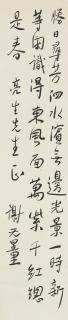 勝日尋芳泗水濱无邊光景一時新
等閑識得東風面萬紫千紅總
是春 亮生先生正 謝无量